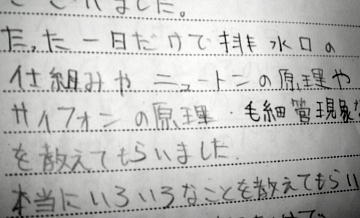 ざいました。
たった一日だけで排水口の
仕組みや ニュートンの原理や
サイフォンの原理・毛細管現象
を教えてもらいました。
本当にいろいろなことを教えてもらい